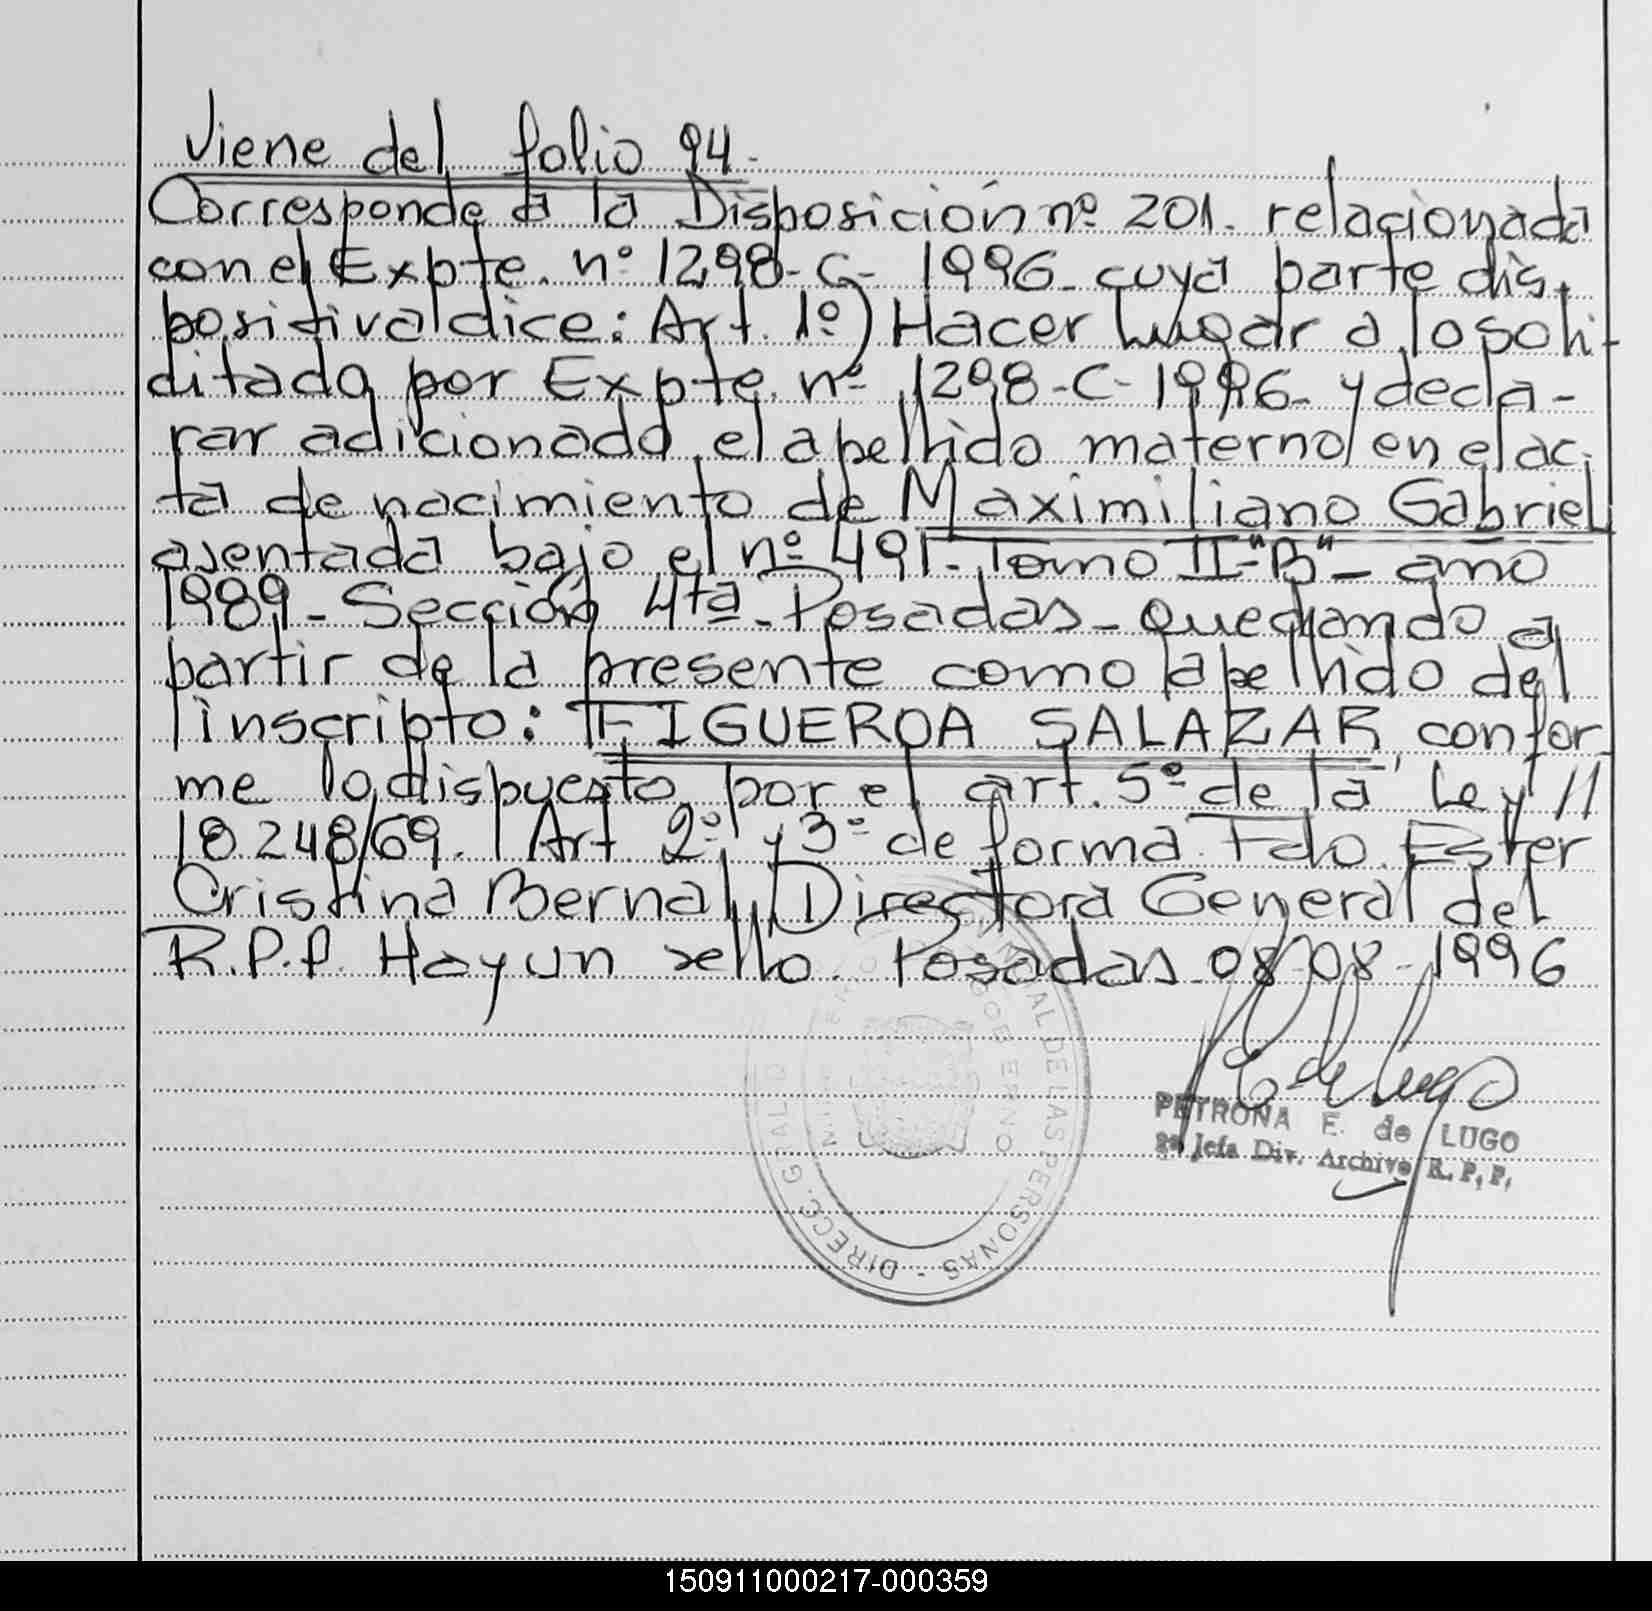 Viene del folio 94.
Corresponde a la Disposición nº 201. relacionada
con el Expte. nº 1298-C- 1996- cuya parte dis-
positiva dice: Art. 1º) Hacer lugar a lo soli-
citado por Expte. nº 1298-C-1996- y decla-
rar adicionado el apellido materno en el ac-
ta de nacimiento de Maximiliano Gabriel
asentada bajo el nº 491- Tomo II-"B"- año
1989- Sección 4ta- Posadas- quedando a
partir de la presente como apellido del
inscripto: FIGUEROA SALAZAR, confor-
me lo dispuesto por el art. 5º de la Ley
18.248/69. Art 2º y 3º de forma. Fdo. Ester
Cristina Bernal, Directora General del
R.P.P. Hay un sello. Posadas. 08-08-1996
PETRONA E. de LUGO
2ª Jefa Div. Archivo R. P. P.
DIRECC. GRAL DE LAS PERSONAS -
GOBIERNO
150911000217-000359